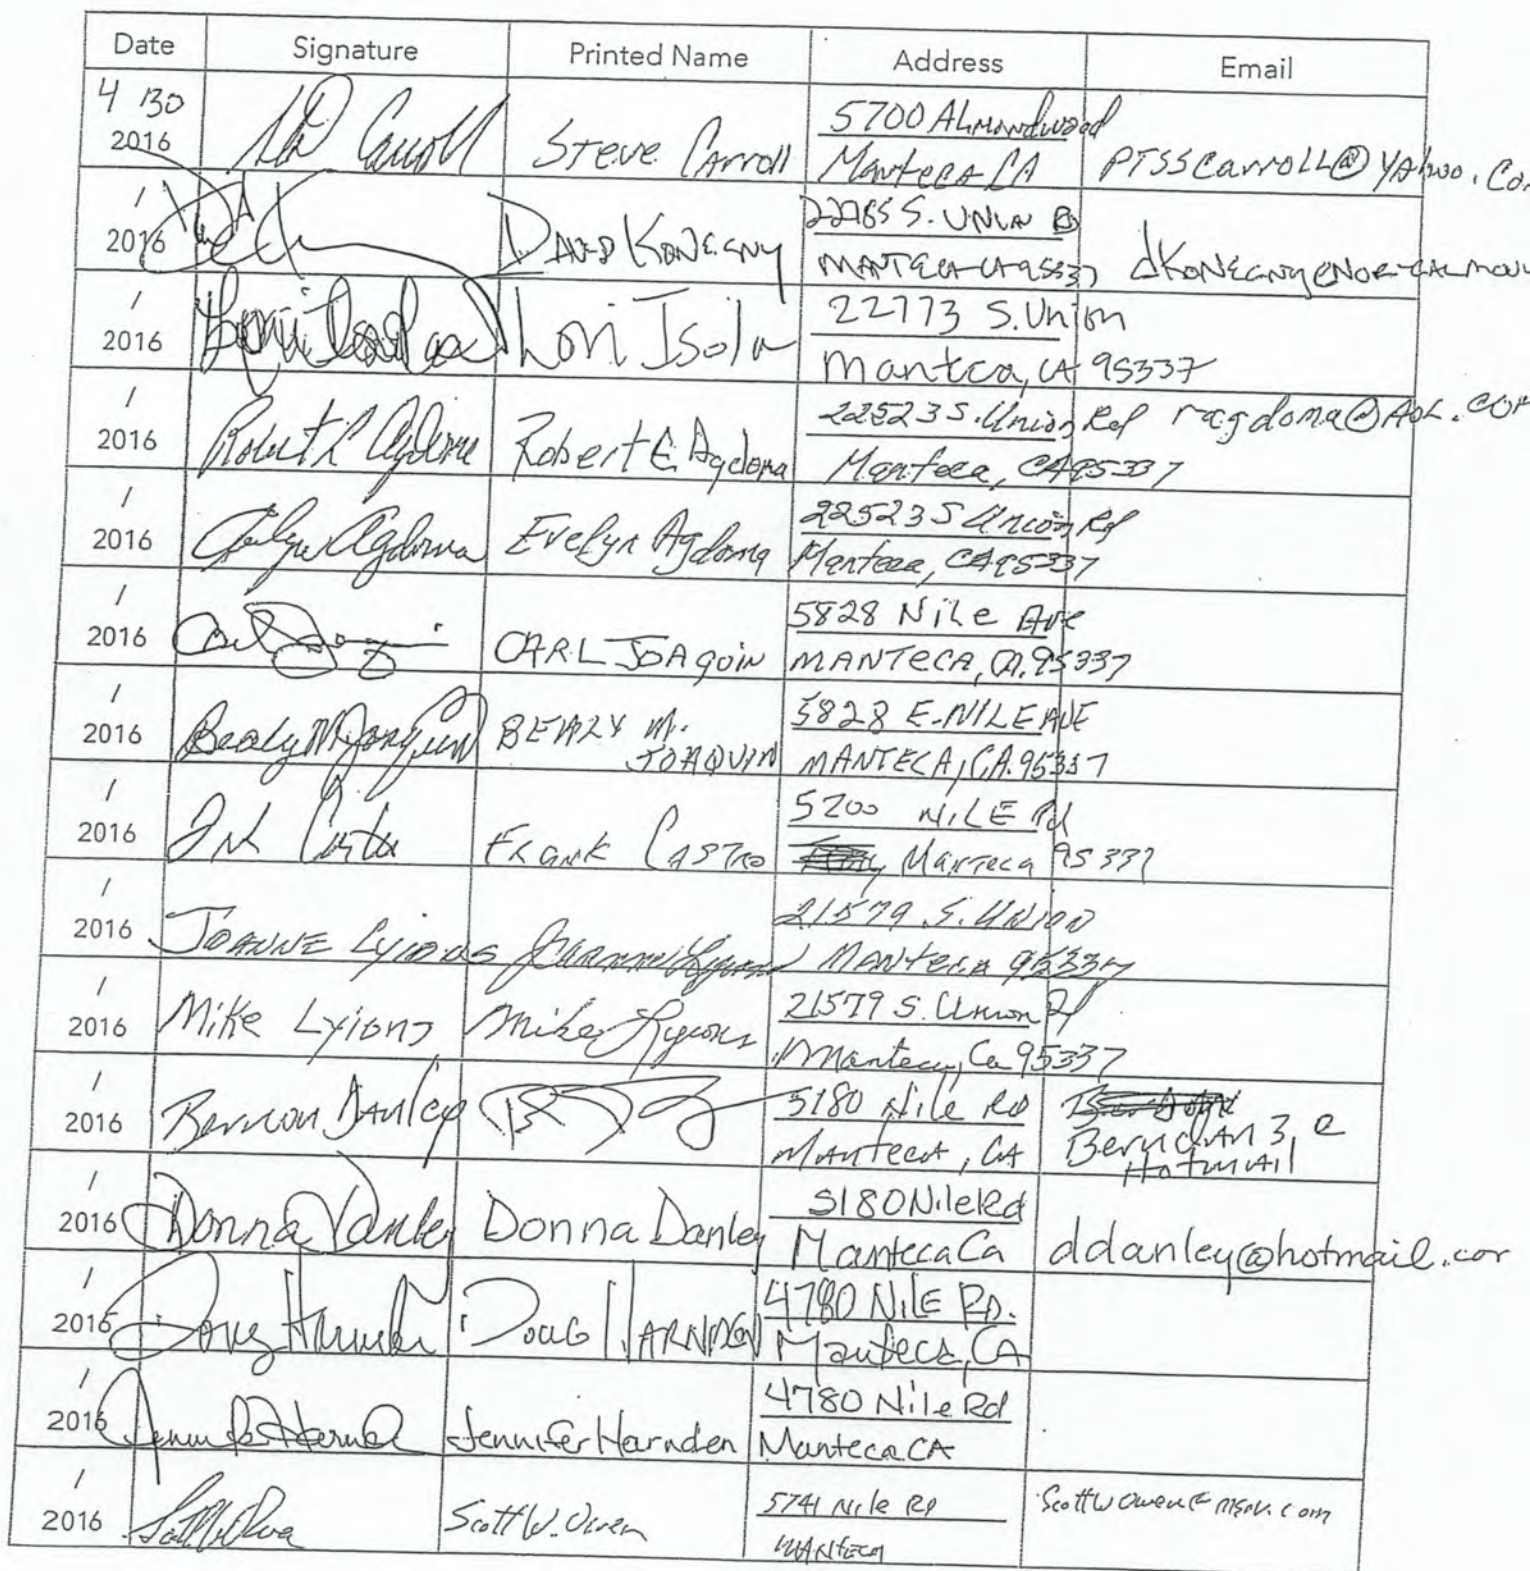 Date Signature Printed Name Address Email
4 / 30
2016 Carroll Steve Carroll 5700 Almondwood
Manteca CA PTSSCarroll@yahoo.com
/
2016 David Konecny S. Union
Manteca CA 95337
/
2016 Lori Isola 22773 S. Union
Manteca, CA 95337
/
2016 Robert E Agdoma Robert E. Agdoma 22523 S. Union Rd ragdoma@AOL.COM
Manteca, CA 95337
/
2016 Evelyn Agdoma Evelyn Agdoma 22523 S Union Rd
Manteca, CA 95337
/
2016 CARL JOAQUIN 5828 Nile Ave
MANTECA, CA. 95337
/
2016 M. JOAQUIN 5828 E. NILE AVE
MANTECA, CA. 95337
/
2016 Frank Castro 5200 NILE Rd
Manteca 95337
/
2016 JOANNE Lyions 21579 S. UNION
MANTECA 95337
/
2016 Mike Lyions Mike Lyions 21579 S. Union Rd
Manteca, Ca 95337
/
2016 Danley 5180 Nile RD
Manteca, CA
Hotmail
/
2016 Donna Danley Donna Danley 5180 Nile Rd
Manteca Ca ddanley@hotmail.com
/
2016 Doug Harnden Doug HARNDEN 4780 NILE RD.
Manteca, CA
/
2016 Jennifer Harnden 4780 Nile Rd
Manteca CA
/
2016 Scott W. Owen 5741 Nile RD ScottWOwen@msn.com
MANTECA